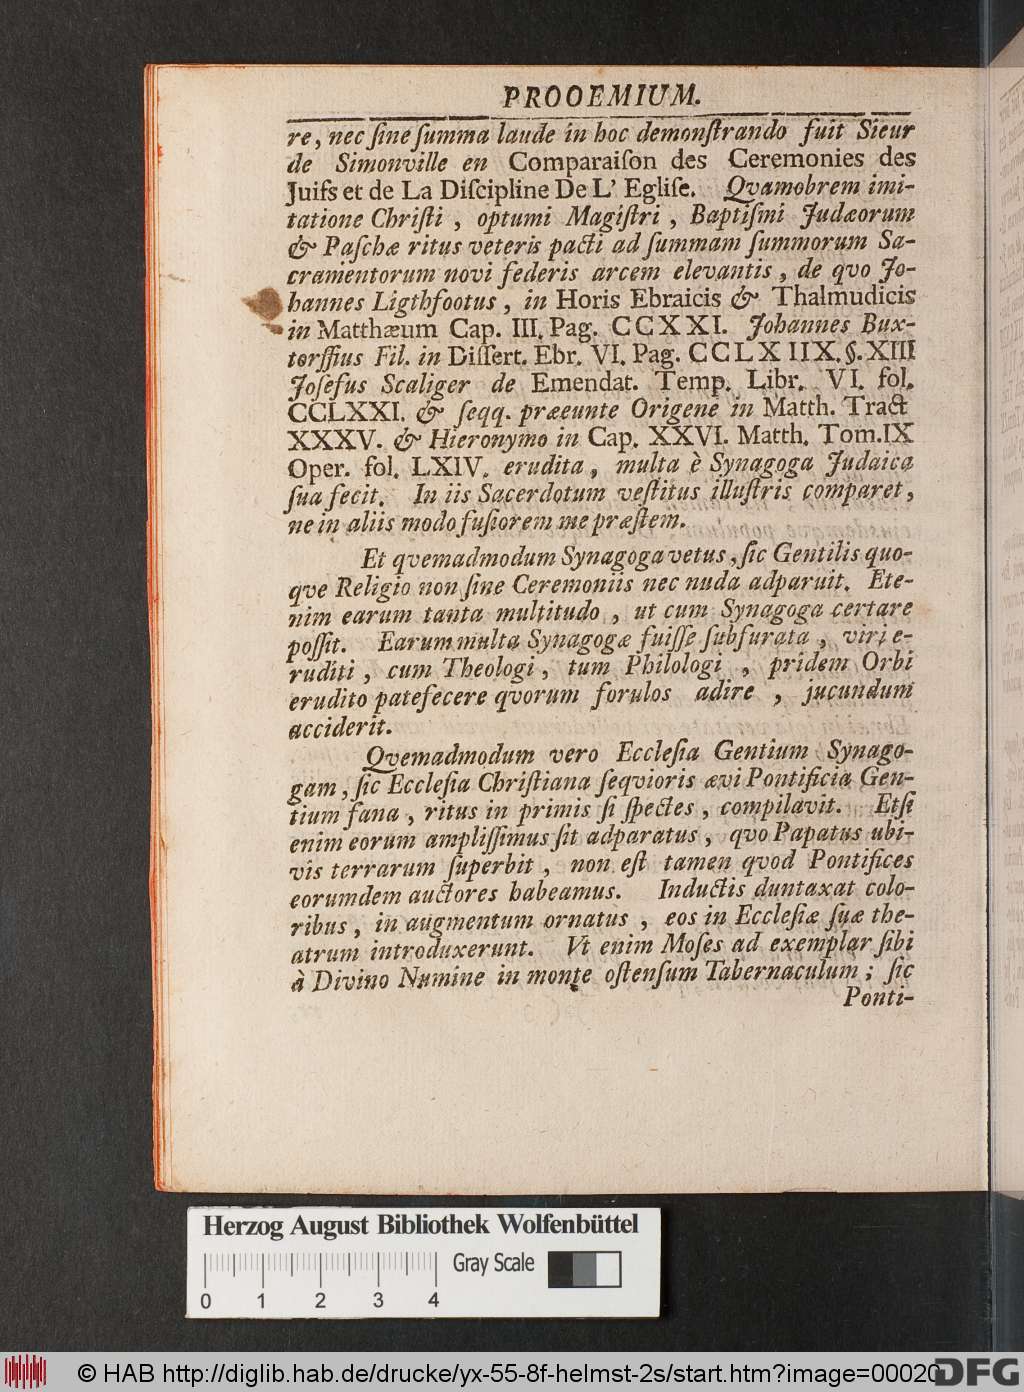 PROOEMIUM.
re, nec ſine ſumma laude in hoc demonſtrando fuit Sieur
de Simonville en Comparaiſon des Ceremonies des
Juifs et de La Diſcipline De L' Egliſe. Qvamobrem imi-
tatione Chriſti, optumi Magiſtri, Baptiſmi Judæorum
& Paſchæ ritus veteris pacti ad ſummam ſummorum Sa-
cramentorum novi federis arcem elevantis, de qvo Jo-
hannes Ligthfootus, in Horis Ebraicis & Thalmudicis
in Matthæum Cap. III. Pag. CCXXI. Johannes Bux-
torffius Fil. in Diſſert. Ebr. VI. Pag. CCLXIIX. §. XIII
Joſefus Scaliger de Emendat. Temp. Libr. VI. fol.
CCLXXI. & ſeqq. præeunte Origene in Matth. Tract
XXXV. & Hieronymo in Cap. XXVI. Matth. Tom. IX
Oper. fol. LXIV. erudita, multa è Synagoga Judaica
ſua fecit. In iis Sacerdotum veſtitus illuſtris comparet,
ne in aliis modo fuſiorem me præſtem.
Et qvemadmodum Synagoga vetus, ſic Gentilis quo-
qve Religio non ſine Ceremoniis nec nuda adparuit. Ete-
nim earum tanta multitudo, ut cum Synagoga certare
poſſit. Earum multa Synagogæ fuiſſe ſubſurata, viri e-
ruditi, cum Theologi, tum Philologi, pridem Orbi
erudito patefecere qvorum forulos adire, jucundum
acciderit.
Qvemadmodum vero Eccleſia Gentium Synago-
gam, ſic Eccleſia Chriſtiana ſeqvioris ævi Pontificia Gen-
tium fana, ritus in primis ſi ſpectes, compilavit. Etſi
enim eorum ampliſſimus ſit adparatus, qvo Papatus ubi-
vis terrarum ſuperbit, non eſt tamen qvod Pontifices
eorumdem auctores habeamus. Inductis duntaxat colo-
ribus, in augmentum ornatus, eos in Eccleſiæ ſuæ the-
atrum introduxerunt. Vt enim Moſes ad exemplar ſibi
à Divino Numine in monte oſtenſum Tabernaculum; ſic
Ponti-
Herzog August Bibliothek Wolfenbüttel
Gray Scale
0 1 2 3 4
© HAB http://diglib.hab.de/drucke/yx-55-8f-helmst-2s/start.htm?image=00020
DFG